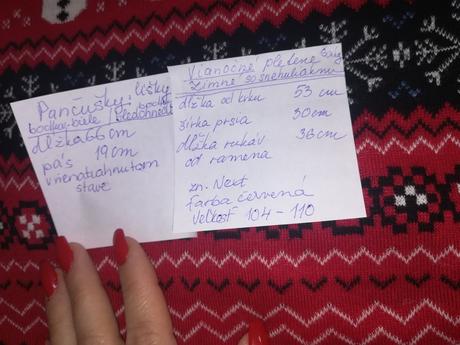 Pančušky: líšky
bodky-biele / bledohnedé
dĺžka 66 cm
pás 19cm
v nenatiahnutom
stave
Vianočné pletené
zimné so snehuliakmi
dĺžka od krku 53 cm
šírka prsia 30 cm
dĺžka rukáv 36 cm
od ramena
zn. Next
Farba červená
Veľkosť 104 - 110